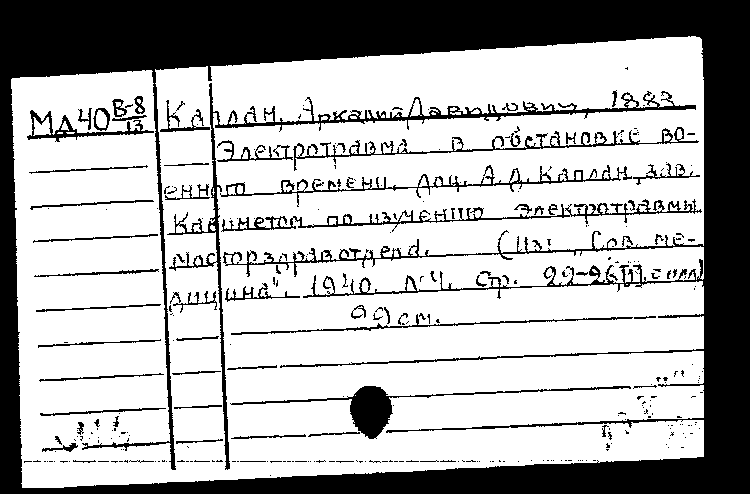 МД40 В-8/13 Каплан, Аркадий Давидович, 1883
Электротравма в обстановке во-
енного времени. Доц. А. Д. Каплан, зав.
Кабинетом по изучению электротравмы
Мосгорздравотдела. (Из: „Сов. ме-
дицина“. 1940. №4. Стр. 22-26, [1], с илл.)
29 см.